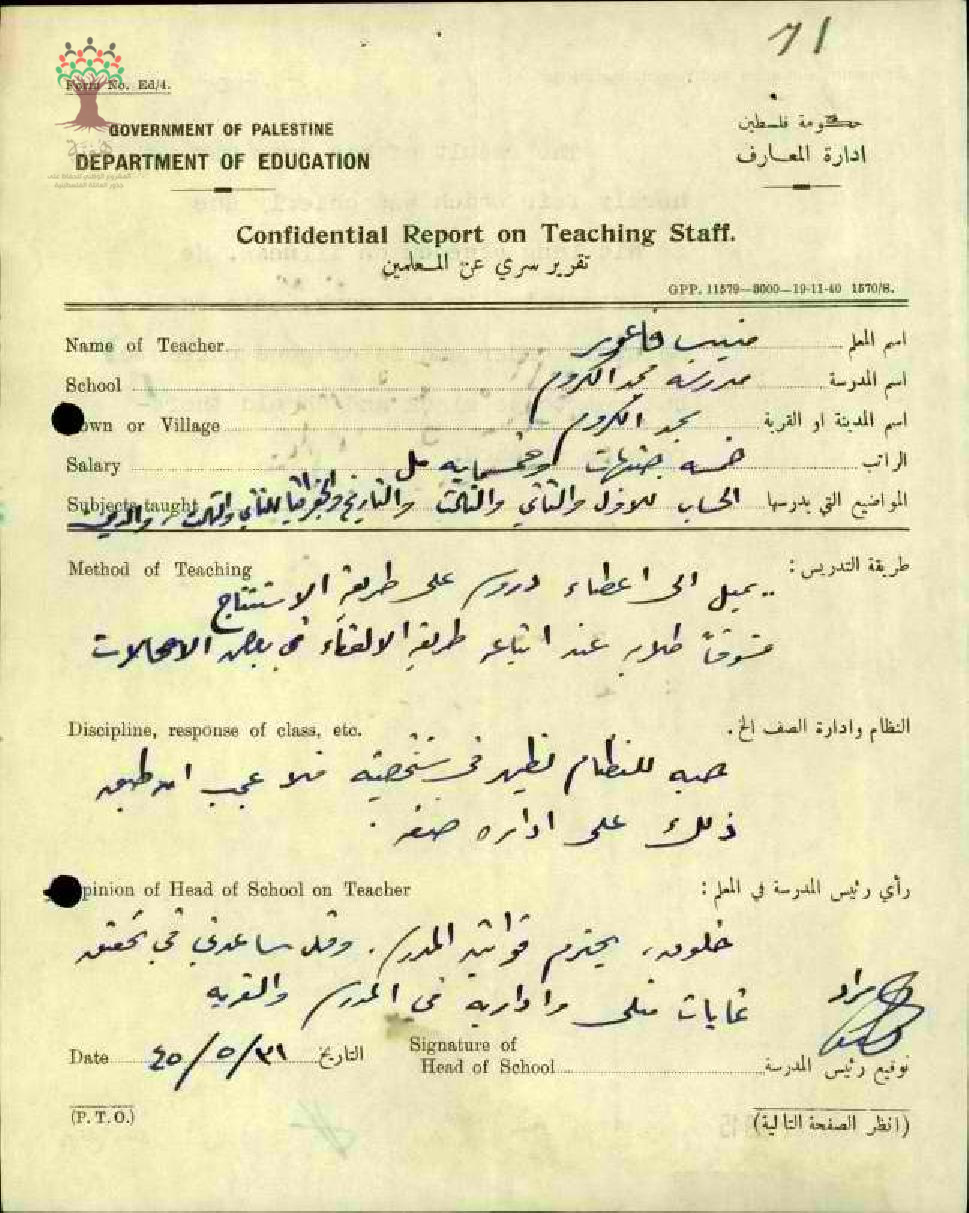 71
Form No. Ed/4.
GOVERNMENT OF PALESTINE
DEPARTMENT OF EDUCATION
حكومة فلسطين
ادارة المعارف
Confidential Report on Teaching Staff.
تقرير سري عن المعلمين
GPP. 11579—3000—19-11-40 1570/8.
Name of Teacher منيب فاعور اسم المعلم
School مدرسة مجد الكروم اسم المدرسة
own or Village مجد الكروم اسم المدينة او القرية
Salary خمسه جنيهات وخمسمايه مل الراتب
Subjects taught الحساب للاول والثاني والثالث والتاريخ والجغرافيا للثاني والثالث والرابع المواضيع التي يدرسها
Method of Teaching طريقة التدريس :
يميل الى اعطاء دروسه على طريقة الاستنتاج
مشوقاً طلابه عند اتباعه طريقة الالقاء في بعض الحالات
Discipline, response of class, etc. النظام وادارة الصف الخ.
حبه للنظام تظهر في شخصيته فلا عجب ان طبق
ذلك على اداره صفه .
pinion of Head of School on Teacher رأي رئيس المدرسة في المعلم :
خلوق، يحترم قوانين المدرسه. وقد ساعدني في تحقيق
غايات وادارية في المدرسه والقريه
Date ٤٥/٥/٣١ التاريخ
Signature of
Head of School توقيع رئيس المدرسة
(P. T. O.) (انظر الصفحة التالية)